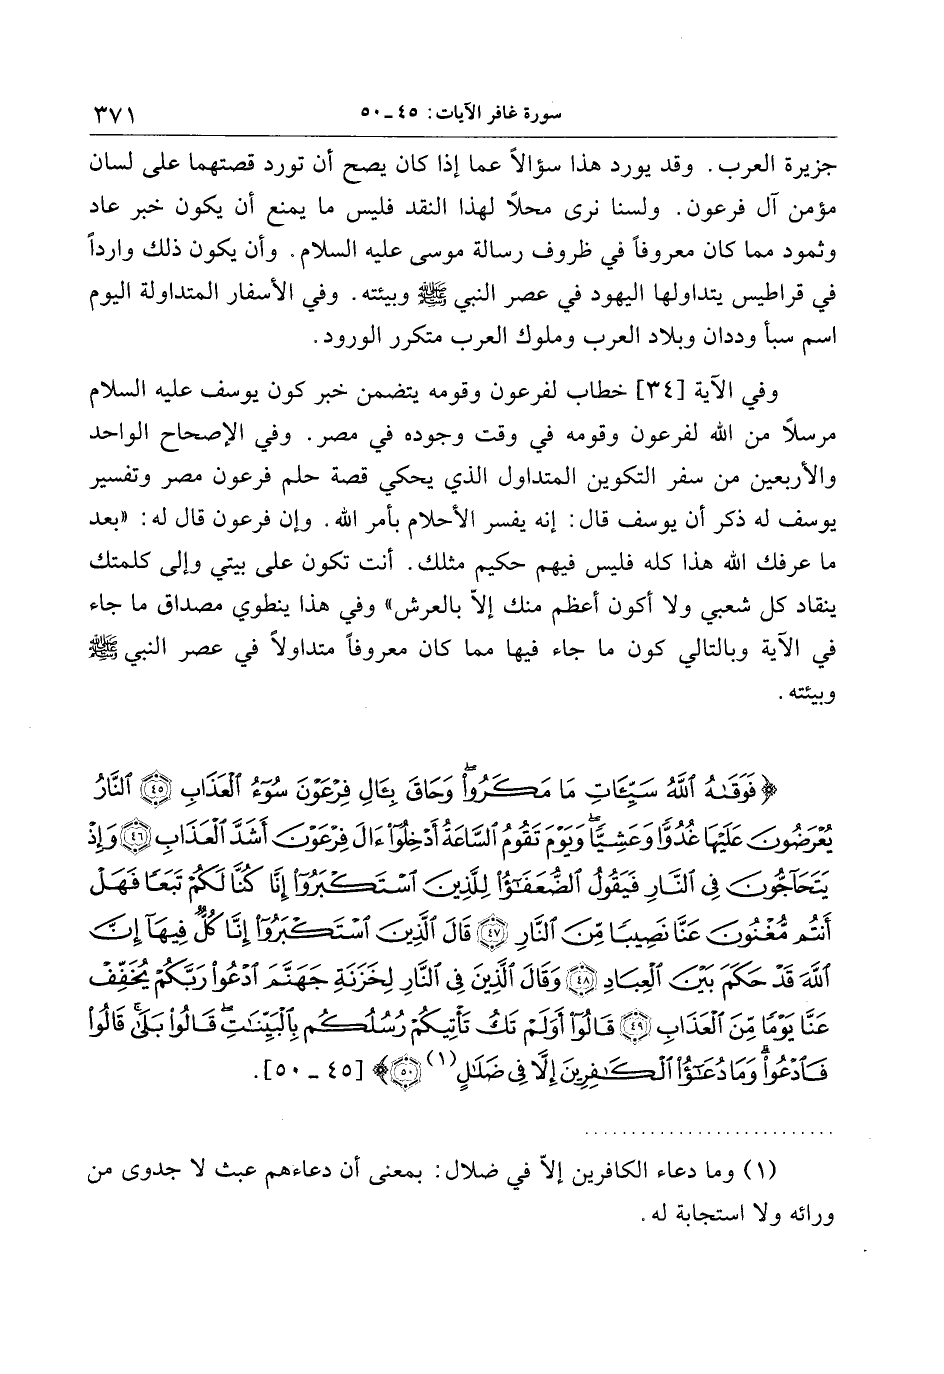 سورة غافر الآيات: ٤٥ ـ ٥٠ ٣٧١
جزيرة العرب. وقد يورد هذا سؤالاً عما إذا كان يصح أن تورد قصتهما على لسان
مؤمن آل فرعون. ولسنا نرى محلاً لهذا النقد فليس ما يمنع أن يكون خبر عاد
وثمود مما كان معروفاً في ظروف رسالة موسى عليه السلام. وأن يكون ذلك وارداً
في قراطيس يتداولها اليهود في عصر النبي ﷺ وبيئته. وفي الأسفار المتداولة اليوم
اسم سبأ وددان وبلاد العرب وملوك العرب متكرر الورود.
وفي الآية [٣٤] خطاب لفرعون وقومه يتضمن خبر كون يوسف عليه السلام
مرسلاً من الله لفرعون وقومه في وقت وجوده في مصر. وفي الإصحاح الواحد
والأربعين من سفر التكوين المتداول الذي يحكي قصة حلم فرعون مصر وتفسير
يوسف له ذكر أن يوسف قال: إنه يفسر الأحلام بأمر الله. وإن فرعون قال له: «بعد
ما عرفك الله هذا كله فليس فيهم حكيم مثلك. أنت تكون على بيتي وإلى كلمتك
ينقاد كل شعبي ولا أكون أعظم منك إلاّ بالعرش» وفي هذا ينطوي مصداق ما جاء
في الآية وبالتالي كون ما جاء فيها مما كان معروفاً متداولاً في عصر النبي ﷺ
وبيئته.
﴿ فَوَقَىٰهُ ٱللَّهُ سَيِّـَٔاتِ مَا مَكَرُوا۟ ۖ وَحَاقَ بِـَٔالِ فِرْعَوْنَ سُوٓءُ ٱلْعَذَابِ ﴿٤٥﴾ ٱلنَّارُ
يُعْرَضُونَ عَلَيْهَا غُدُوًّا وَعَشِيًّا ۖ وَيَوْمَ تَقُومُ ٱلسَّاعَةُ أَدْخِلُوٓا۟ ءَالَ فِرْعَوْنَ أَشَدَّ ٱلْعَذَابِ ﴿٤٦﴾ وَإِذْ
يَتَحَآجُّونَ فِى ٱلنَّارِ فَيَقُولُ ٱلضُّعَفَـٰٓؤُا۟ لِلَّذِينَ ٱسْتَكْبَرُوٓا۟ إِنَّا كُنَّا لَكُمْ تَبَعًا فَهَلْ
أَنتُم مُّغْنُونَ عَنَّا نَصِيبًا مِّنَ ٱلنَّارِ ﴿٤٧﴾ قَالَ ٱلَّذِينَ ٱسْتَكْبَرُوٓا۟ إِنَّا كُلٌّ فِيهَآ إِنَّ
ٱللَّهَ قَدْ حَكَمَ بَيْنَ ٱلْعِبَادِ ﴿٤٨﴾ وَقَالَ ٱلَّذِينَ فِى ٱلنَّارِ لِخَزَنَةِ جَهَنَّمَ ٱدْعُوا۟ رَبَّكُمْ يُخَفِّفْ
عَنَّا يَوْمًا مِّنَ ٱلْعَذَابِ ﴿٤٩﴾ قَالُوٓا۟ أَوَلَمْ تَكُ تَأْتِيكُمْ رُسُلُكُم بِٱلْبَيِّنَـٰتِ ۖ قَالُوا۟ بَلَىٰ ۚ قَالُوا۟
فَٱدْعُوا۟ ۗ وَمَا دُعَـٰٓؤُا۟ ٱلْكَـٰفِرِينَ إِلَّا فِى ضَلَـٰلٍ (١) ﴿٥٠﴾ ﴾ [٤٥ ـ ٥٠].
(١) وما دعاء الكافرين إلاّ في ضلال: بمعنى أن دعاءهم عبث لا جدوى من
ورائه ولا استجابة له.